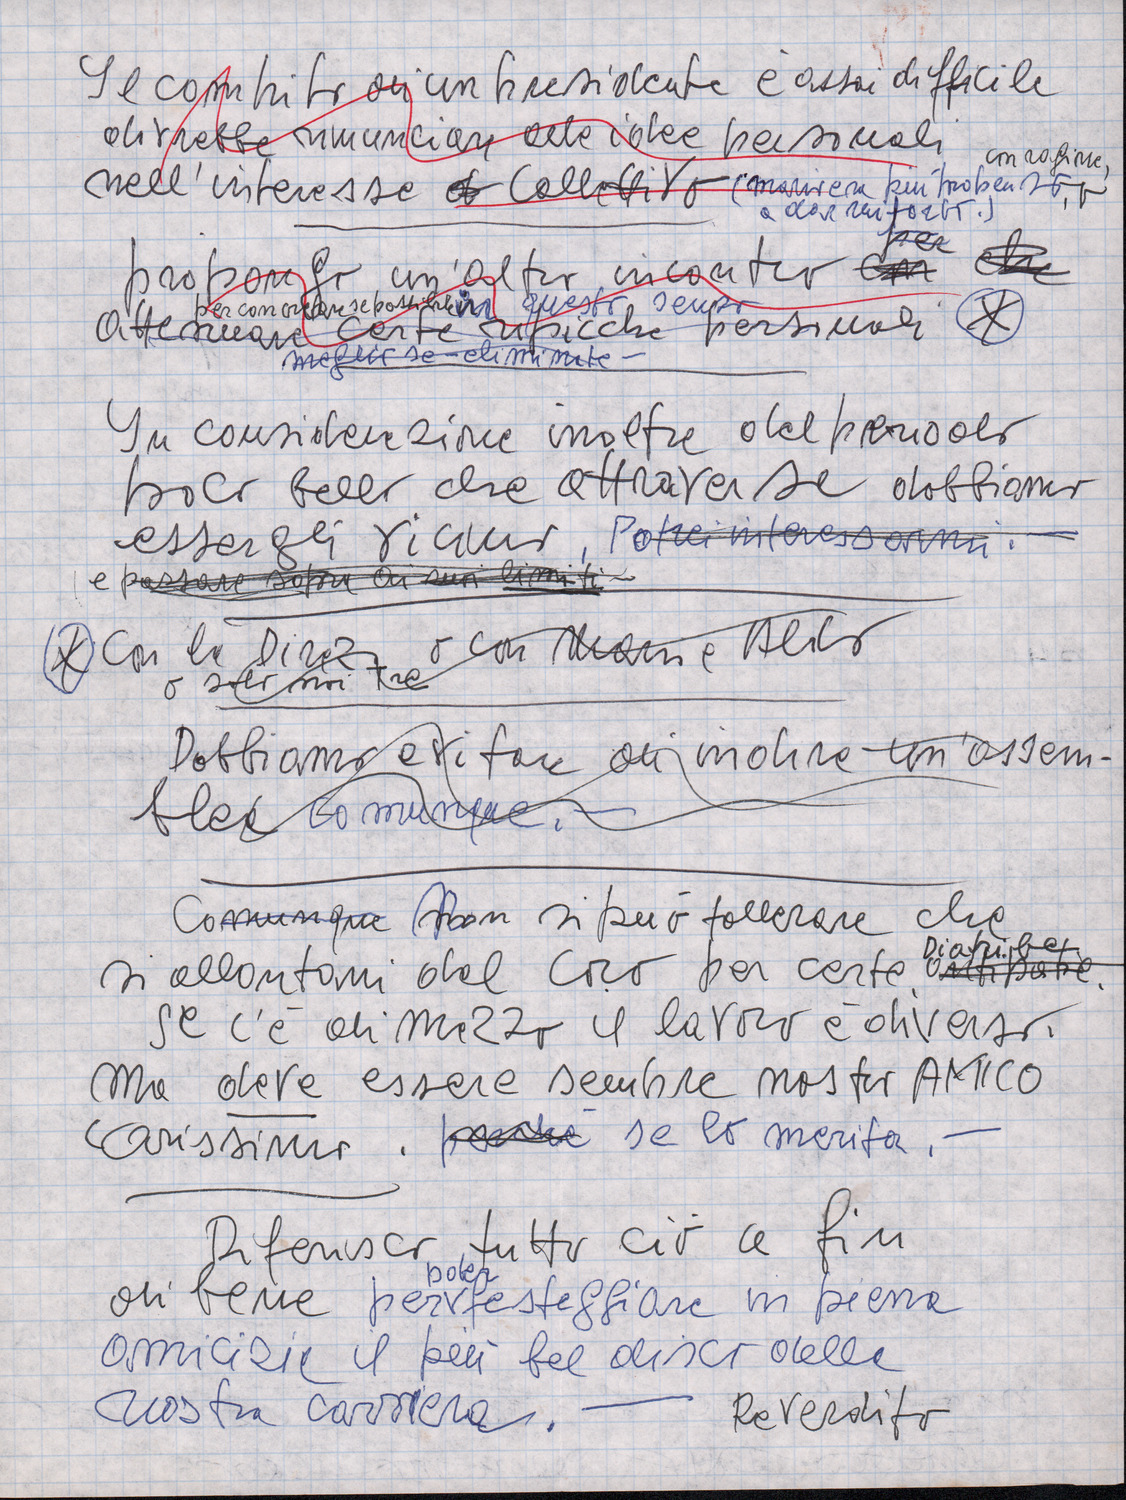 Il compito di un presidente è assai difficile
dovrebbe rinunciare alle idee personali
con ragione,
nell'interesse collettivo
propongo un'altro incontro per
in questo senso
attenuare certe ripicche personali
meglio se eliminate
In considerazione inoltre del periodo
poco bello che attraversa dobbiamo
essergli vicino, Potrei interessarmi.
e passare sopra ai suoi limiti
Con la Direz o con Aldo
o solo noi tre
Dobbiamo evitare di indire un'assem-
blea comunque.
Comunque Non si può tollerare che
si allontani dal Coro per certe
Se c'è di mezzo il lavoro è diverso.
Ma deve essere sempre nostro AMICO
carissimo. perché se lo merita.
Riferisco tutto ciò a fin
poter
di bene per festeggiare in piena
amicizia il più bel disco della
nostra carriera. Reverdito